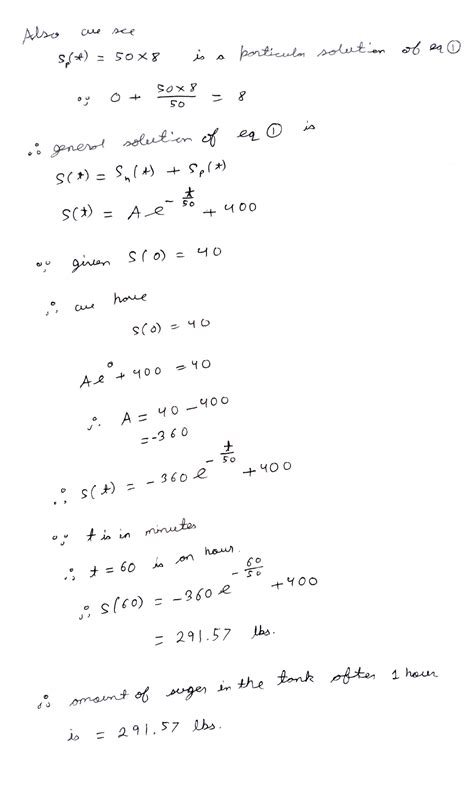 Also we see
Sp(t) = 50×8 is a particular solution of eq ①
∵ 0 + (50×8)/50 = 8
∴ general solution of eq ① is
S(t) = Sh(t) + Sp(t)
S(t) = A e^(-t/50) + 400
∵ given S(0) = 40
∴ we have
S(0) = 40
Ae^0 + 400 = 40
∴ A = 40 - 400
= -360
∴ S(t) = -360 e^(-t/50) + 400
∵ t is in minutes
∴ t = 60 is an hour.
∴ S(60) = -360 e^(-60/50) + 400
= 291.57 lbs.
∴ amount of suger in the tank after 1 hour
is = 291.57 lbs.